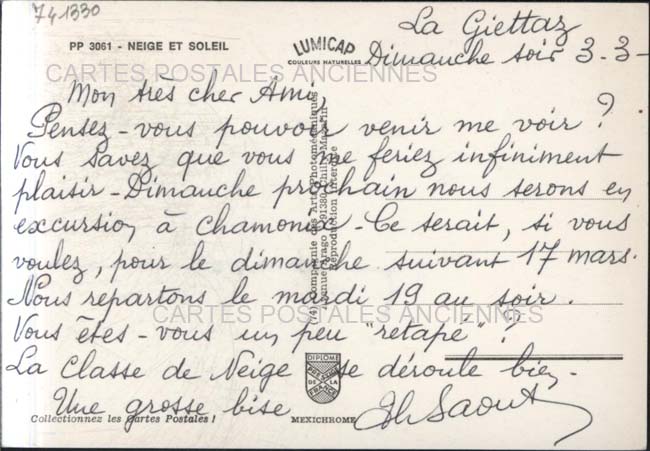 741330
La Giettaz
PP 3061 - NEIGE ET SOLEIL
LUMICAP
COULEURS NATURELLES
Dimanche soir 3-3-
CARTES POSTALES ANCIENNES
Mon très cher Ami,
Pensez-vous pouvoir venir me voir ?
Vous savez que vous me feriez infiniment
plaisir - Dimanche prochain nous serons en
excursion à Chamonix - Ce serait, si vous
voulez, pour le dimanche suivant 17 mars.
Nous repartons le mardi 19 au soir.
CARTES POSTALES ANCIENNES
Vous êtes-vous un peu "retapé" ?
La Classe de Neige se déroule bien.
Une grosse bise
Saout
(74) Compagnie des Arts Photomécaniques
Arago 91380 Chilly-Mazarin
Reproduction interdite
DIPLÔME
PRESTIGE
DE LA
FRANCE
MEXICHROME
Collectionnez les Cartes Postales !